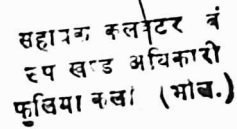 सहायक कलक्टर वं
उप खण्ड अधिकारी
फुलिया कलां (भील.)